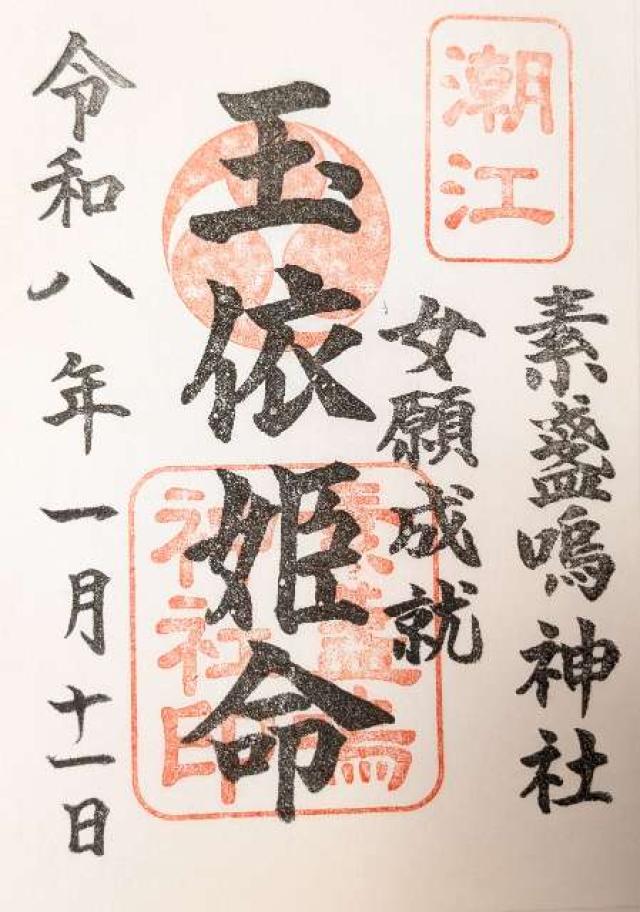 潮江
素盞嗚神社
女願成就
玉依姫命
素盞嗚
神社印
令和八年一月十一日